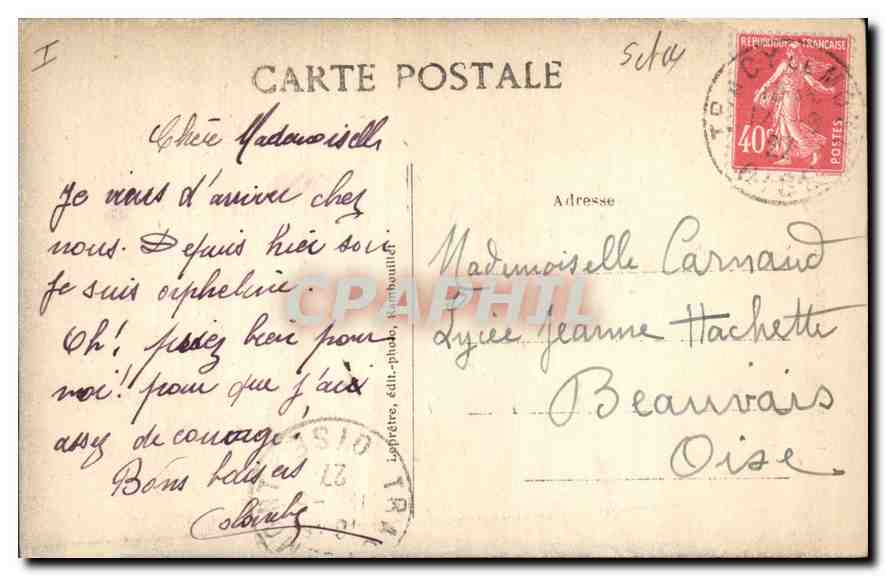 I
5ct 04
CARTE POSTALE
REPUBLIQUE FRANÇAISE
40
POSTES
TRACY LE MONT
27
OISE
Chère Mademoiselle
Je viens d'arriver chez
nous. Depuis hier soir
je suis orpheline.
Oh! priez bien pour
moi! pour que j'aie
assez de courage!
Bons baisers
Colombe
Leprêtre, édit.-photo, Rambouillet
Adresse
Mademoiselle Carnaud
Lycée Jeanne Hachette
Beauvais
Oise.
CPAPHIL
OISE
27